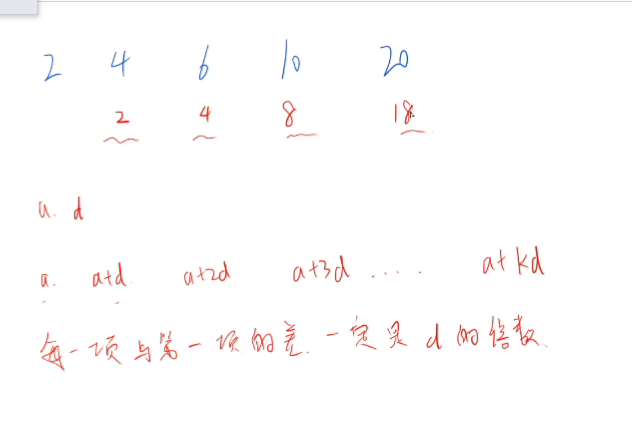 2 4 6 10 20
2 4 8 18
a. d
a. a+d. a+2d a+3d .... a+kd
每一项与第一项的差.一定是d的倍数.